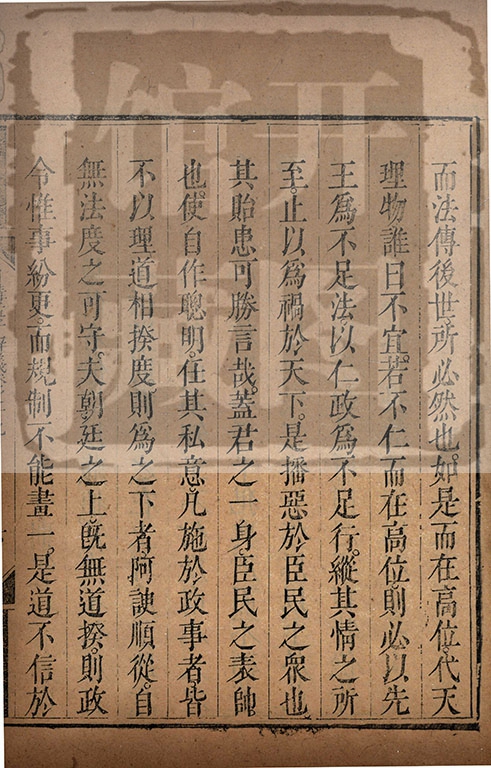 而法傳後世。所必然也。如是而在高位。代天
理物誰曰不宜。若不仁而在高位。則必以先
王爲不足法。以仁政爲不足行。縱其情之所
至。止以爲禍於天下。是播惡於臣民之衆也。
其貽患可勝言哉。蓋君之一身。臣民之表帥
也。使自作聰明。任其私意。凡施於政事者皆
不以理道相揆度則爲之下者阿諛順從。自
無法度之可守。夫朝廷之上。旣無道揆。則政
令惟事紛更。而規制不能畫一。是道不信於